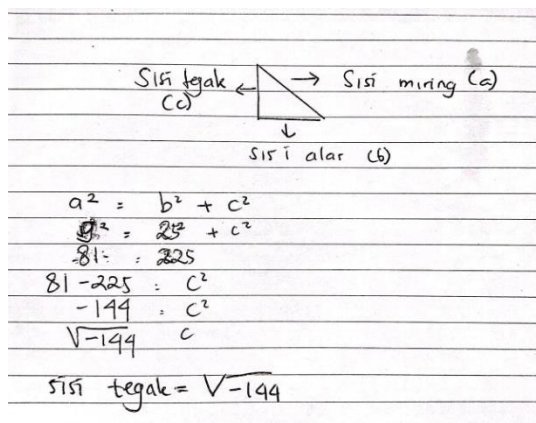 Sisi tegak
(c)
Sisi miring (a)
sisi alas (b)
a² = b² + c²
9² = 25² + c²
-81 = 225
81 - 225 = c²
-144 = c²
√-144 c
sisi tegak = √-144